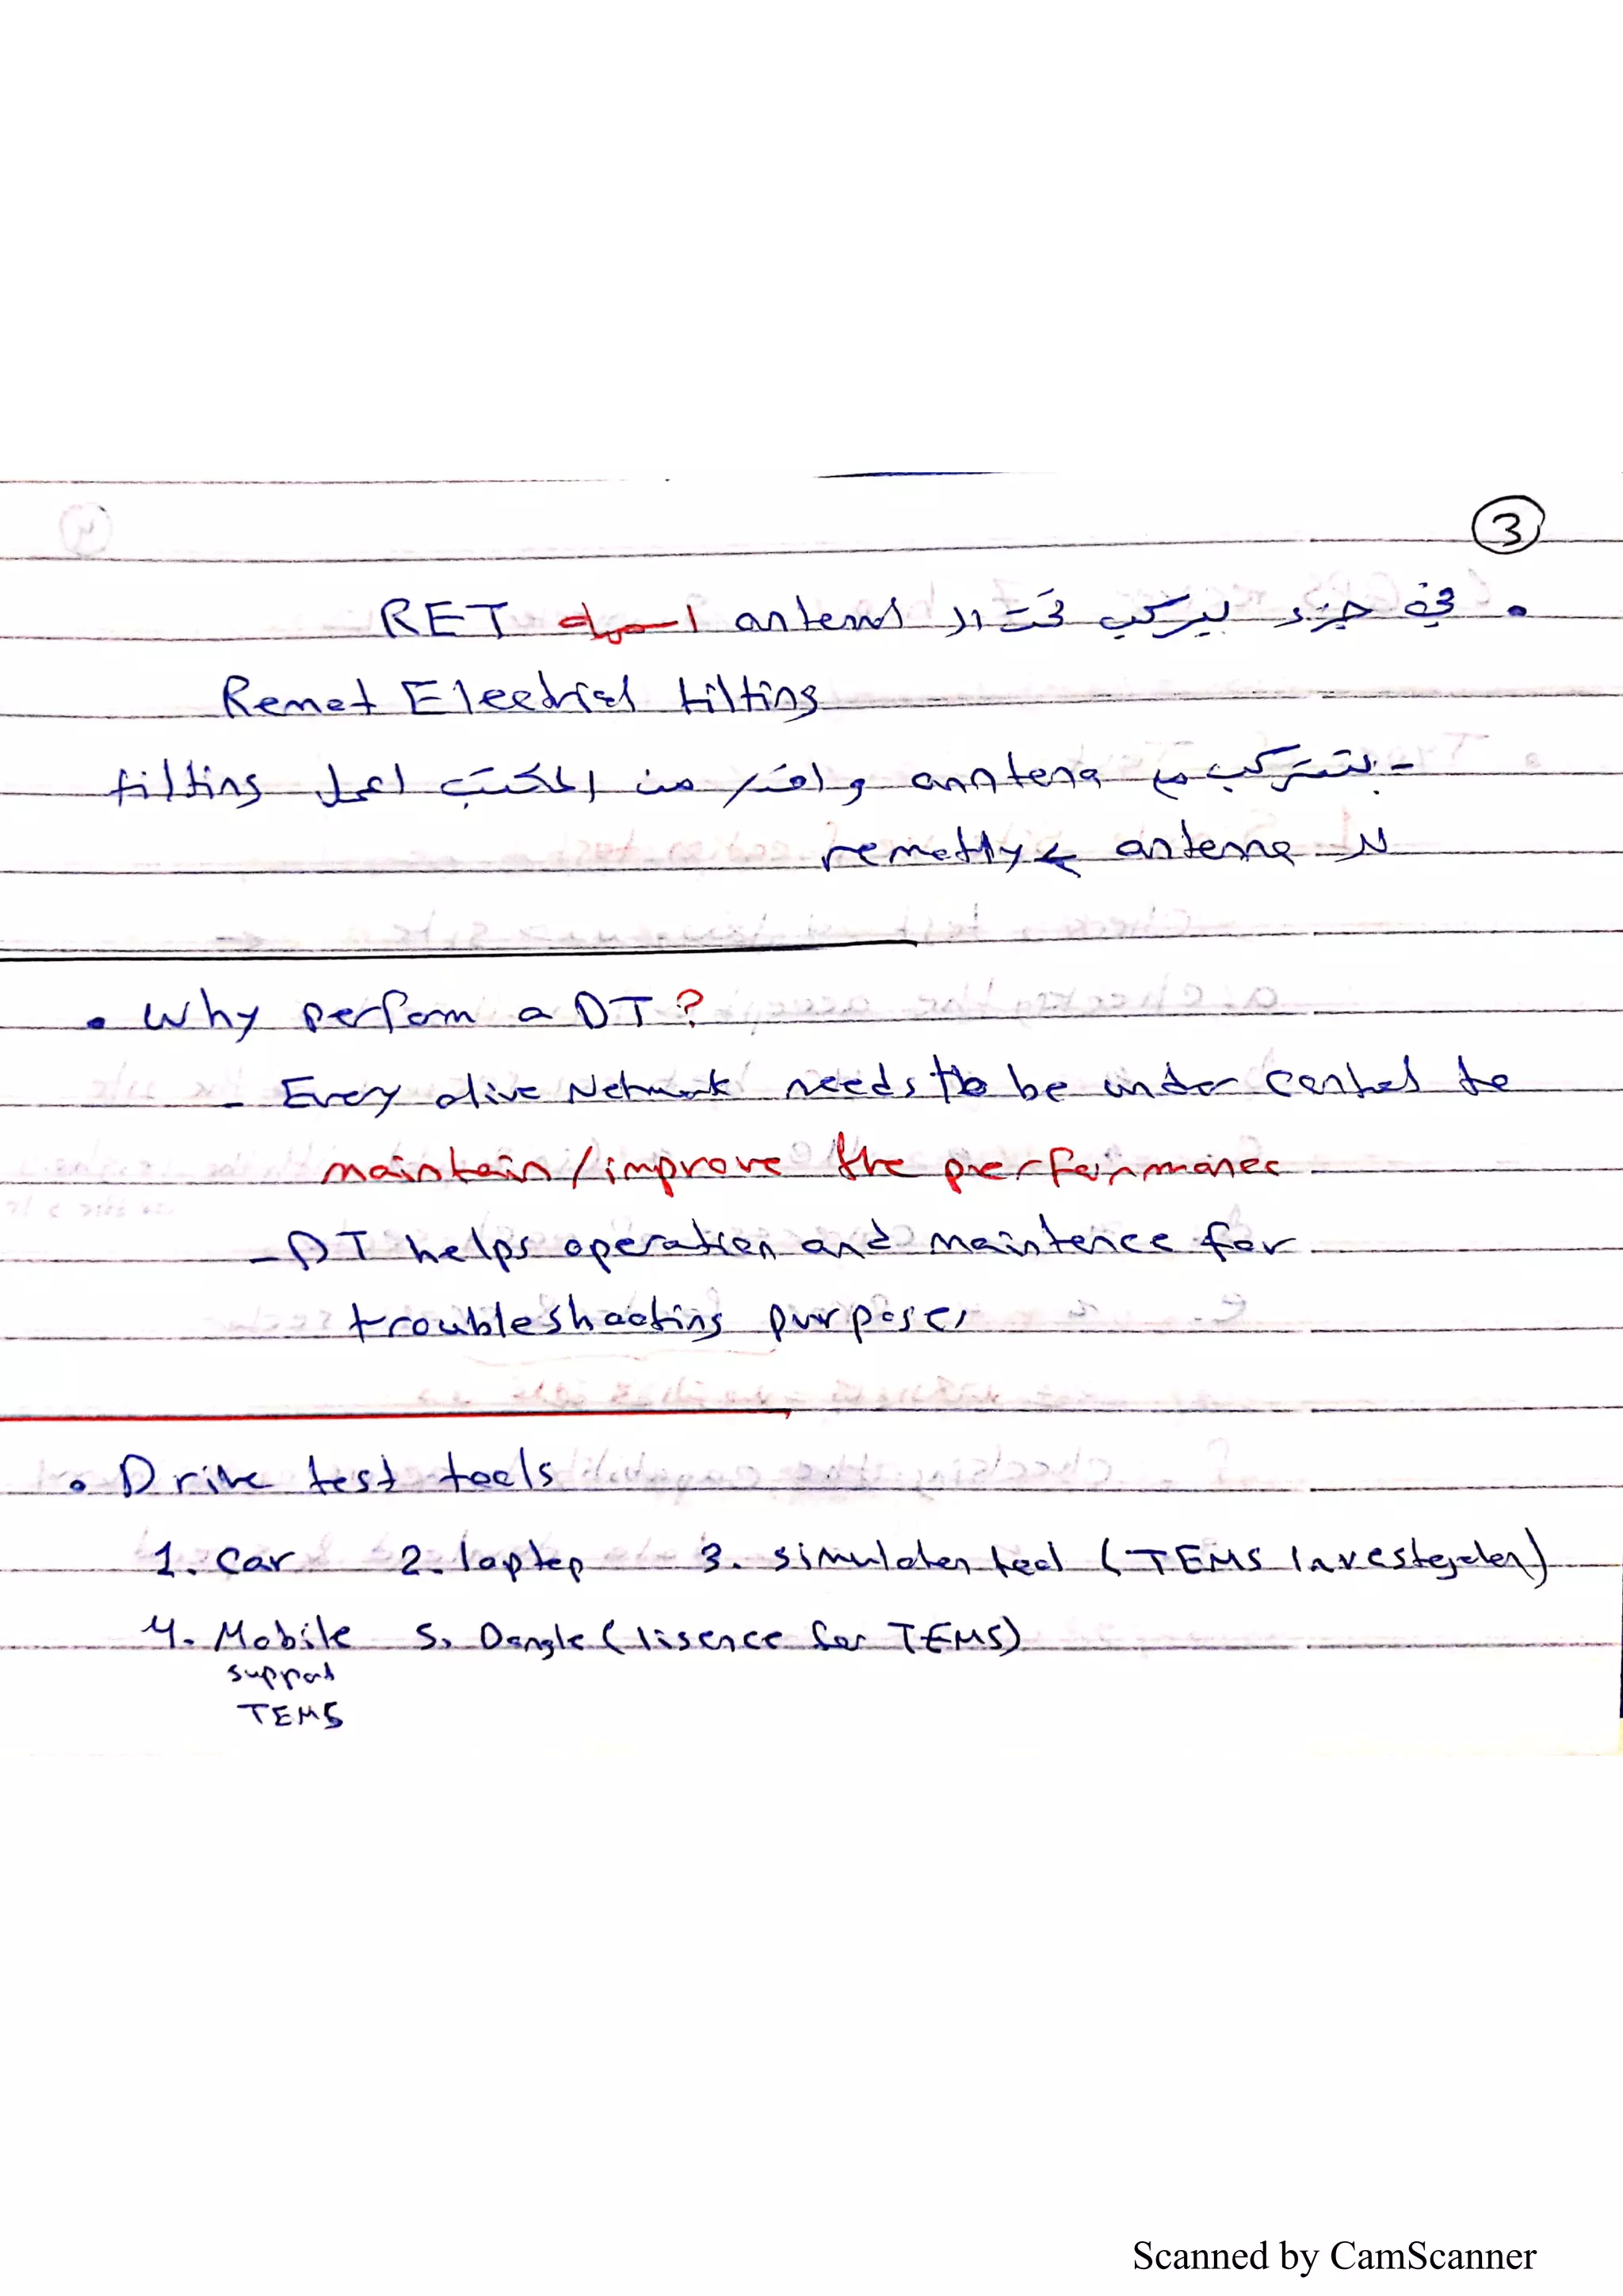 3
• فى جزء بيركب تحت ال antena اسمه RET
Remot Electrical tilting
- بتتركب مع anntena و اقدر من المكتب اعمل tilting
لل antenna → remotly
• Why perform a DT?
- Every alive Network needs to be under control to
maintain/improve the performance
- DT helps operation and maintence for
troubleshooting purposes
• Drive test tools
1. Car 2. laptop 3. simulation tool (TEMS Investegation)
4. Mobile 5. Dongle (lisence for TEMS)
support
TEMS
Scanned by CamScanner